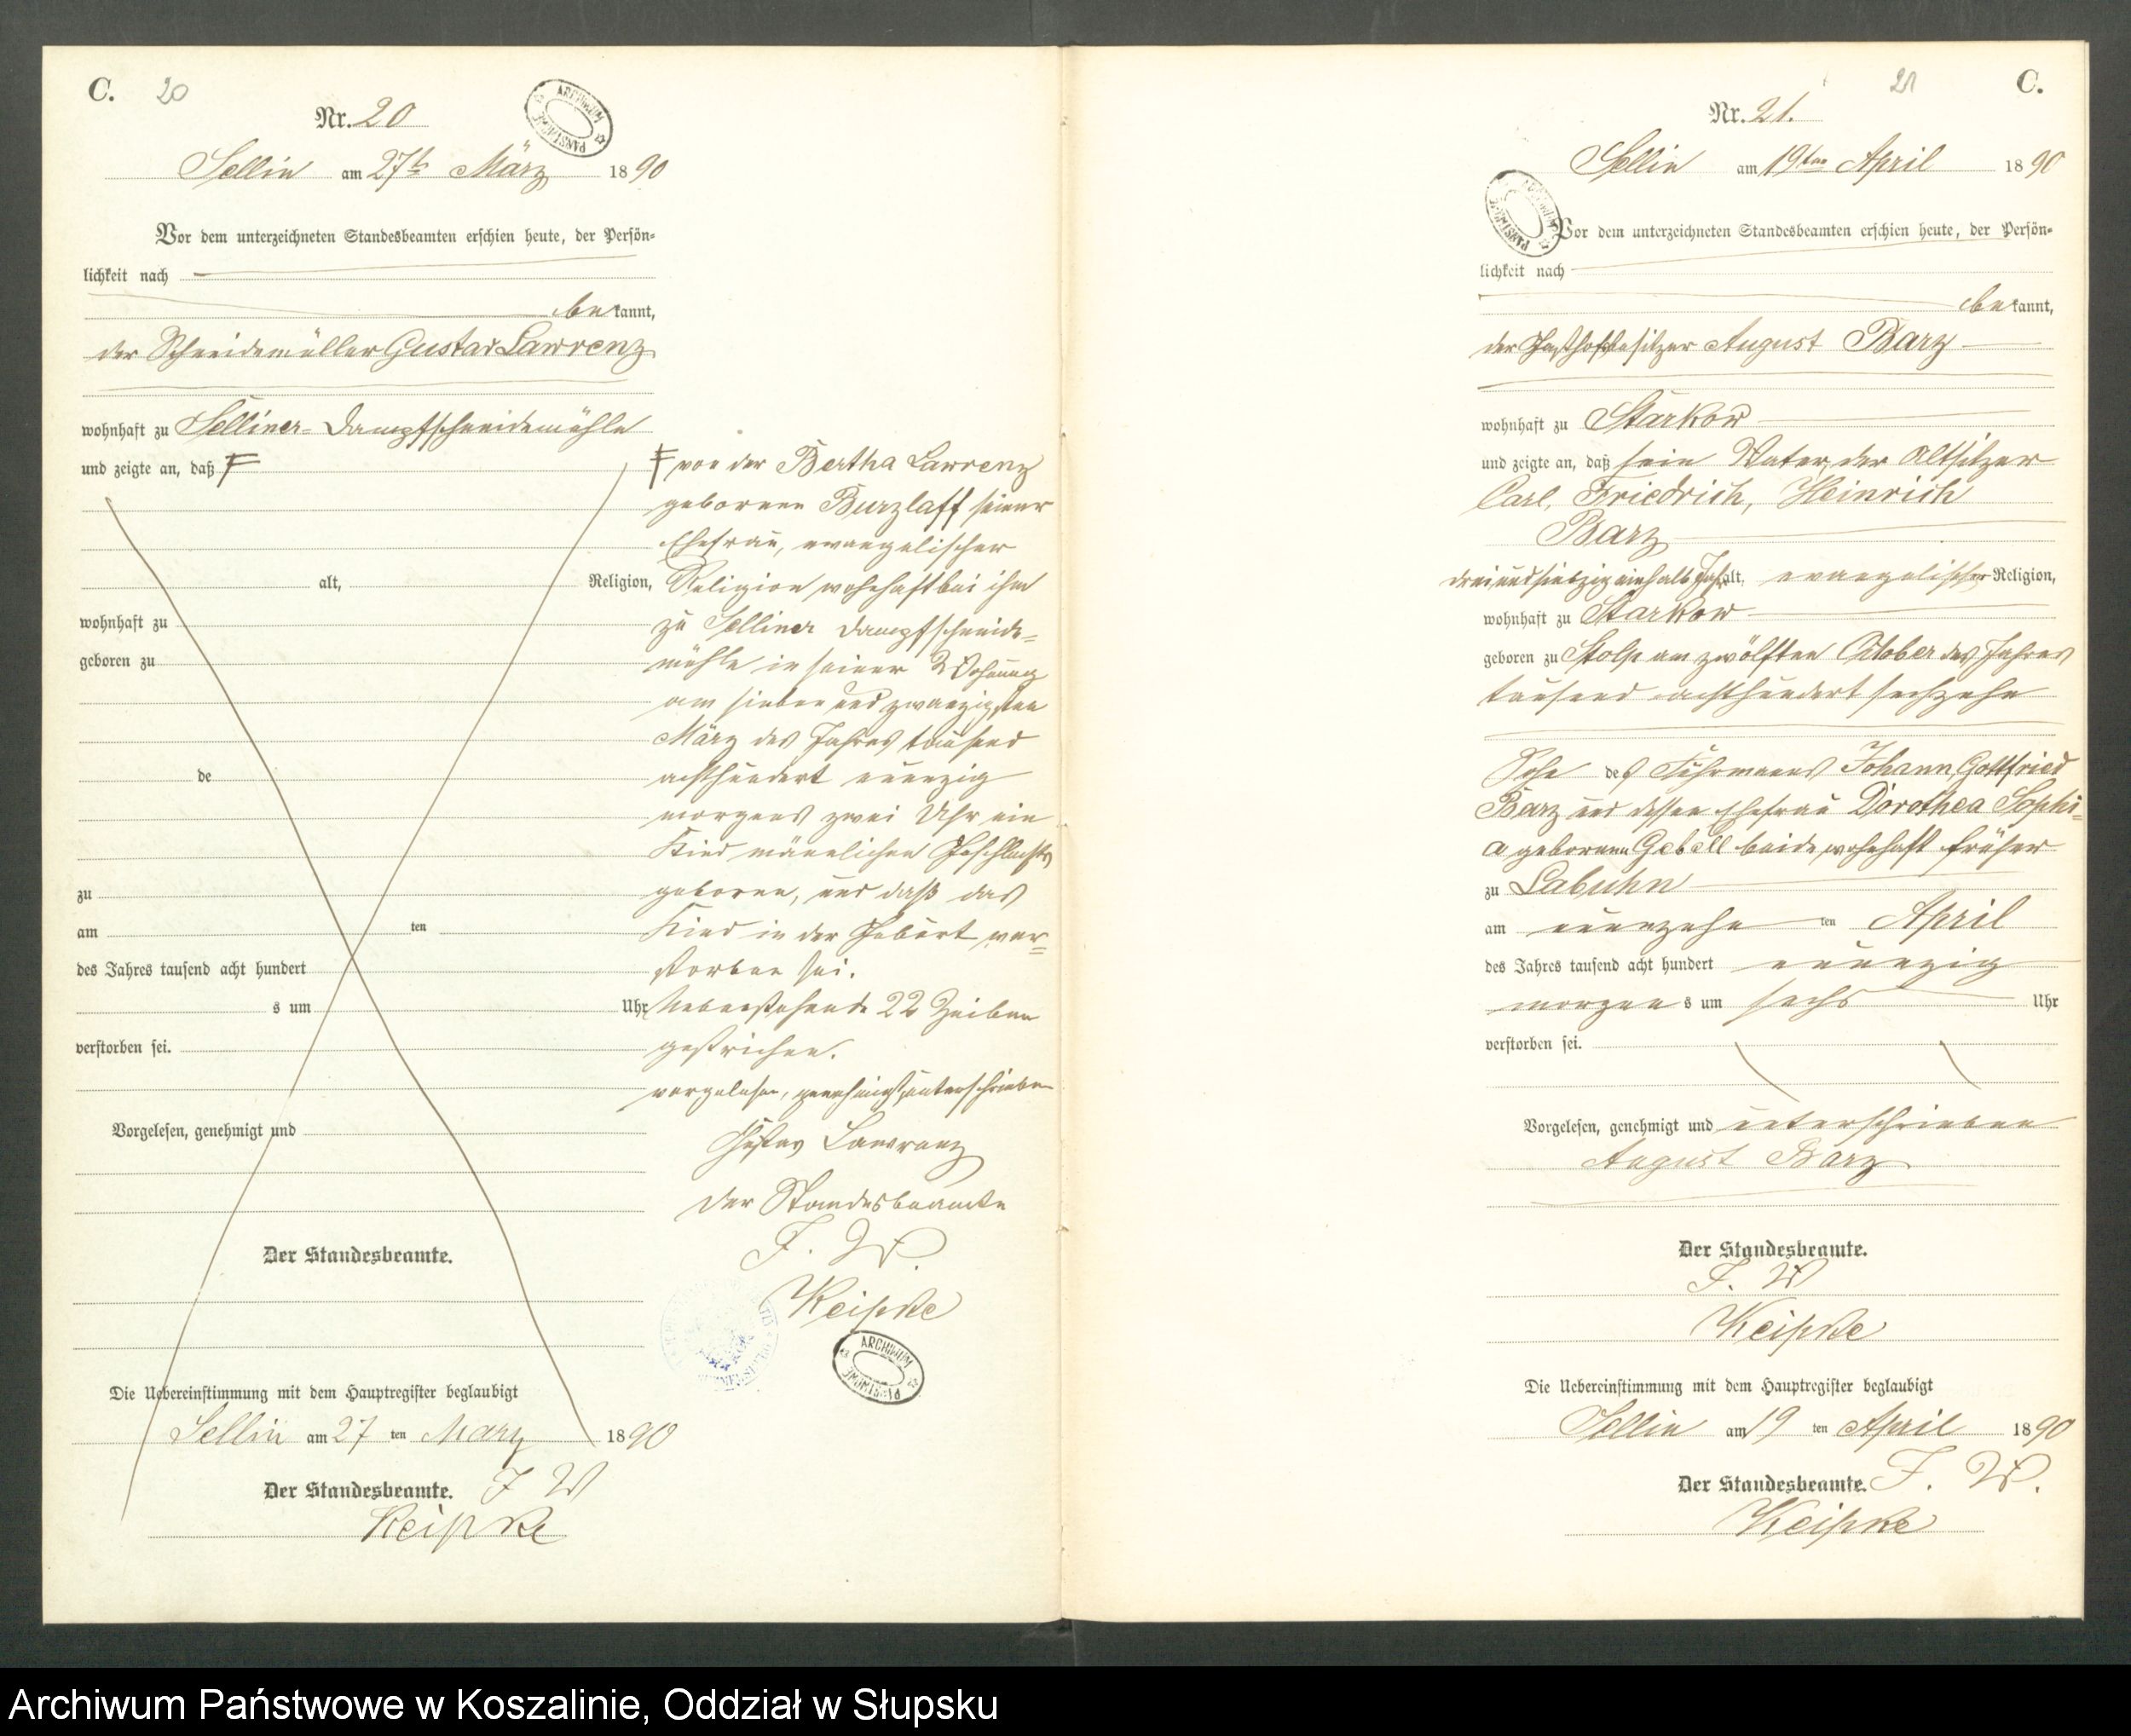 C. 20
Nr. 20
ARCHIWUM PAŃSTWOWE
Sellin am 27t März 1890
Vor dem unterzeichneten Standesbeamten erschien heute, der Persön=
lichkeit nach
bekannt,
der Schneidemüller Gustav Lawrenz
wohnhaft zu Selliner-Dampfschneidemühle
und zeigte an, daß F
alt, Religion,
wohnhaft zu
geboren zu
de
zu
am ten
des Jahres tausend acht hundert
s um Uhr
verstorben sei.
Vorgelesen, genehmigt und
Der Standesbeamte.
Die Uebereinstimmung mit dem Hauptregister beglaubigt
Sellin am 27 ten März 1890
Der Standesbeamte. I W
Keipke
F von der Bertha Lawrenz
geborenen Burzlaff seiner
Ehefrau, evangelischer
Religion wohnhaft bei ihm
zu Selliner Dampfschneide=
mühle in seiner Wohnung
am sieben und zwanzigsten
März des Jahres tausend
achthundert neunzig
morgens zwei Uhr ein
Kind männlichen Geschlechts
geboren, und daß das
Kind in der Geburt ver=
storben sei.
22 Zeilen
gestrichen.
vorgelesen, genehmigt, unterschrieben
Gustav Lawrenz
Der Standesbeamte
I. W.
Keipke
ARCHIWUM PAŃSTWOWE
21 C.
Nr. 21.
ARCHIWUM PAŃSTWOWE
Sellin am 19ten April 1890
Vor dem unterzeichneten Standesbeamten erschien heute, der Persön=
lichkeit nach
bekannt,
der Gasthofbesitzer August Barz
wohnhaft zu Starkow
und zeigte an, daß sein Vater, der Altsitzer
Carl, Friedrich, Heinrich
Barz
dreiundsiebzig einhalb Jahr alt, evangelischer Religion,
wohnhaft zu Starkow
geboren zu Stolp am zwölften October des Jahres
tausend achthundert sechzehn
Sohn des Fuhrmanns Johann Gottfried
Barz und dessen Ehefrau Dorothea Sophi=
a geborenen Gebell beide wohnhaft früher
zu Labuhn
am neunzehn ten April
des Jahres tausend acht hundert neunzig
morgens um sechs Uhr
verstorben sei.
Vorgelesen, genehmigt und unterschrieben
August Barz
Der Standesbeamte.
I. W
Keipke
Die Uebereinstimmung mit dem Hauptregister beglaubigt
Sellin am 19 ten April 1890
Der Standesbeamte. I. W.
Keipke
Archiwum Państwowe w Koszalinie, Oddział w Słupsku